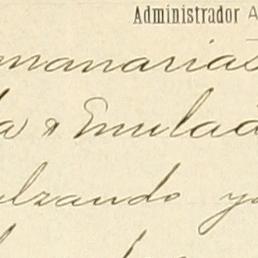 Administrador A
manarias
a & Emulad
lzando y